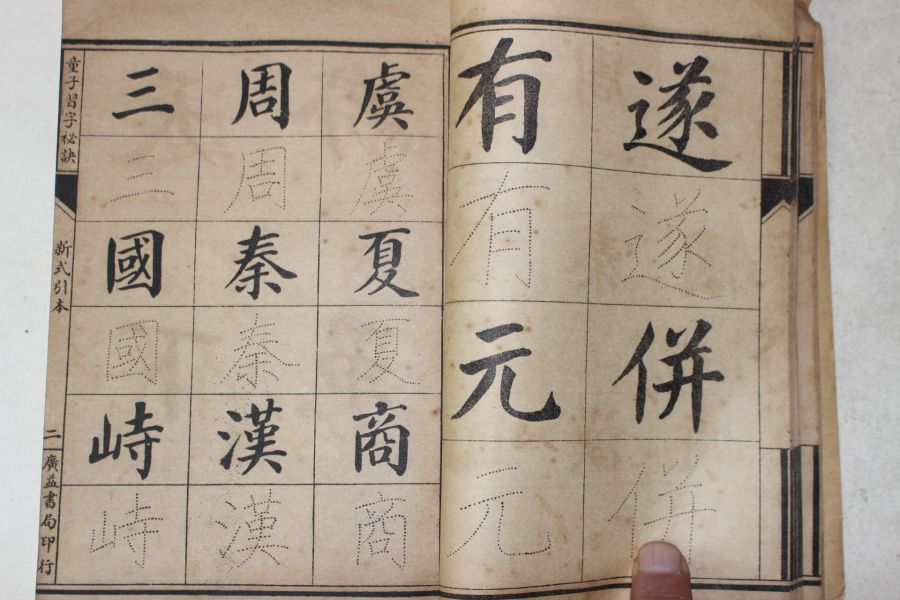 遂遂併併
有有元元
虞虞夏夏商商
周周秦秦漢漢
三三國國峙峙
童子習字祕訣
新式引本
二
廣益書局印行